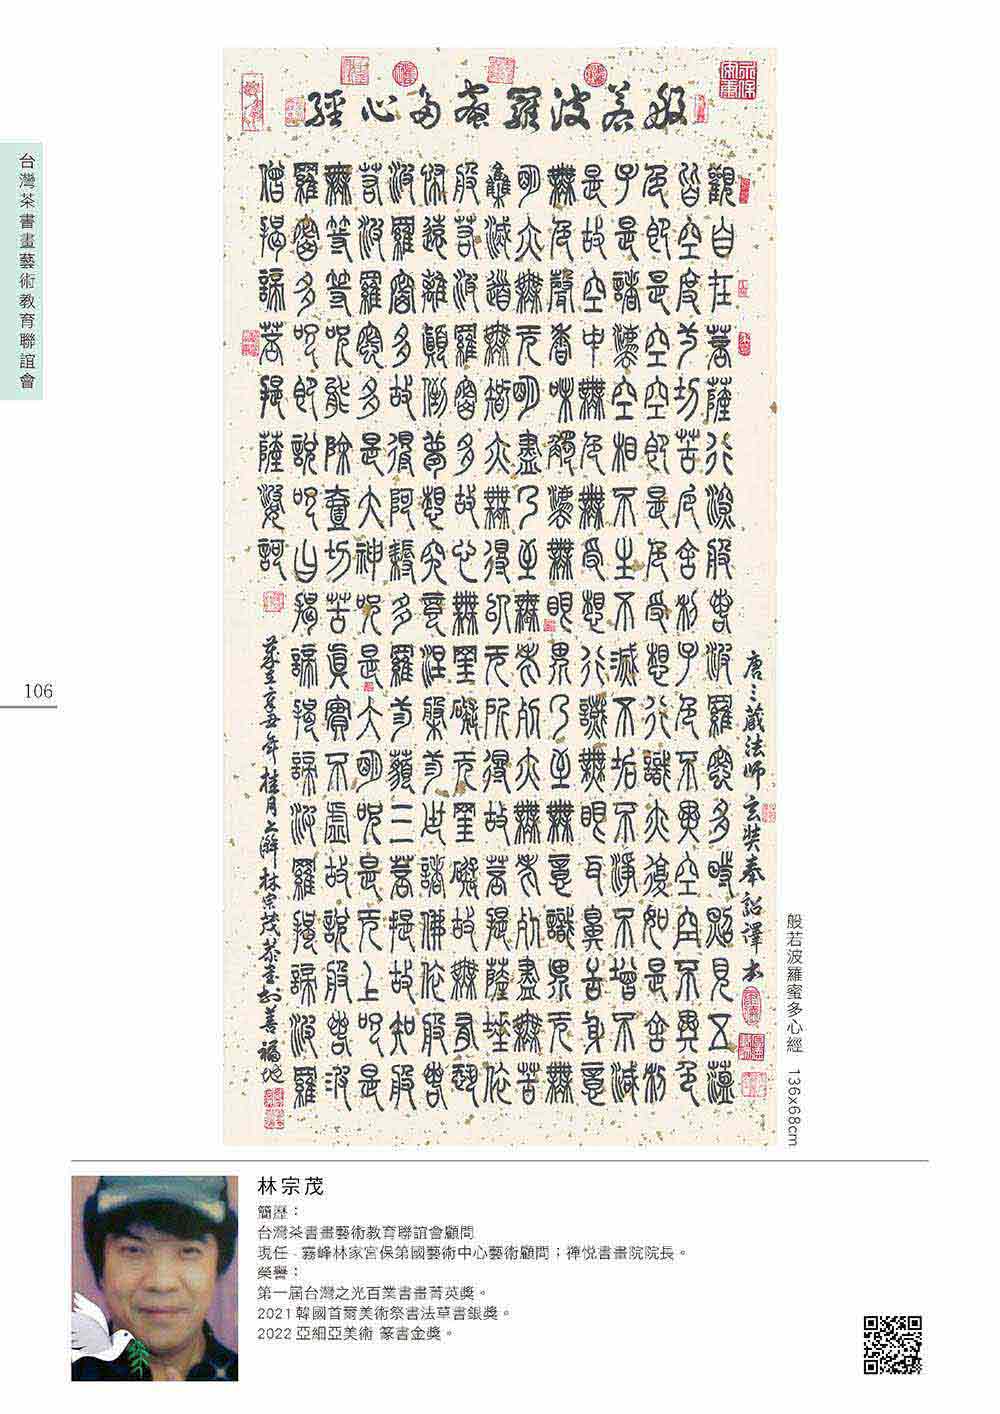 台灣茶書畫藝術教育聯誼會
106
般若波羅蜜多心經
觀自在菩薩行深般若波羅蜜多時照見五蘊
皆空度一切苦厄舍利子色不異空空不異色
色即是空空即是色受想行識亦復如是舍利
子是諸法空相不生不滅不垢不淨不增不減
是故空中無色無受想行識無眼耳鼻舌身意
無色聲香味觸法無眼界乃至無意識界无無
明亦無无明盡乃至無老死亦無老死盡無苦
集滅道無智亦無得以无所得故菩提薩埵依
般若波羅蜜多故心無罣礙无罣礙故無有恐
怖遠離顛倒夢想究竟涅槃三世諸佛依般若
波羅蜜多故得阿耨多羅三藐三菩提故知般
若波羅蜜多是大神咒是大明咒是无上咒是
無等等咒能除壹切苦真實不虛故說般若波
羅蜜多咒即說咒曰揭諦揭諦波羅揭諦波羅
僧揭諦菩提薩婆訶
唐三藏法師玄奘奉詔譯本
辛丑年桂月上澣林宗茂恭書於善福地
般若波羅蜜多心經 136x68cm
林宗茂
簡歷：
台灣茶書畫藝術教育聯誼會顧問
現任 - 霧峰林家宮保第國藝術中心藝術顧問；禪悅書畫院院長。
榮譽：
第一屆台灣之光百業書畫菁英獎。
2021 韓國首爾美術祭書法草書銀獎。
2022 亞細亞美術 篆書金獎。